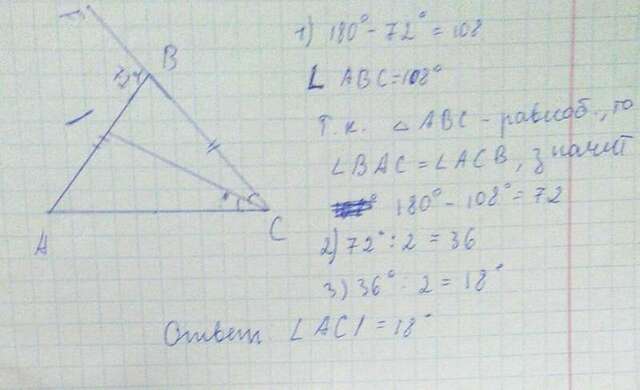 1) 180° - 72° = 108
∟ ABC = 108°
Т.к. △ ABC - равноб., то
∠BAC = ∠ACB, значит
180° - 108° = 72
2) 72° : 2 = 36
3) 36° : 2 = 18°
Ответ ∠ACI = 18°
B
A
C